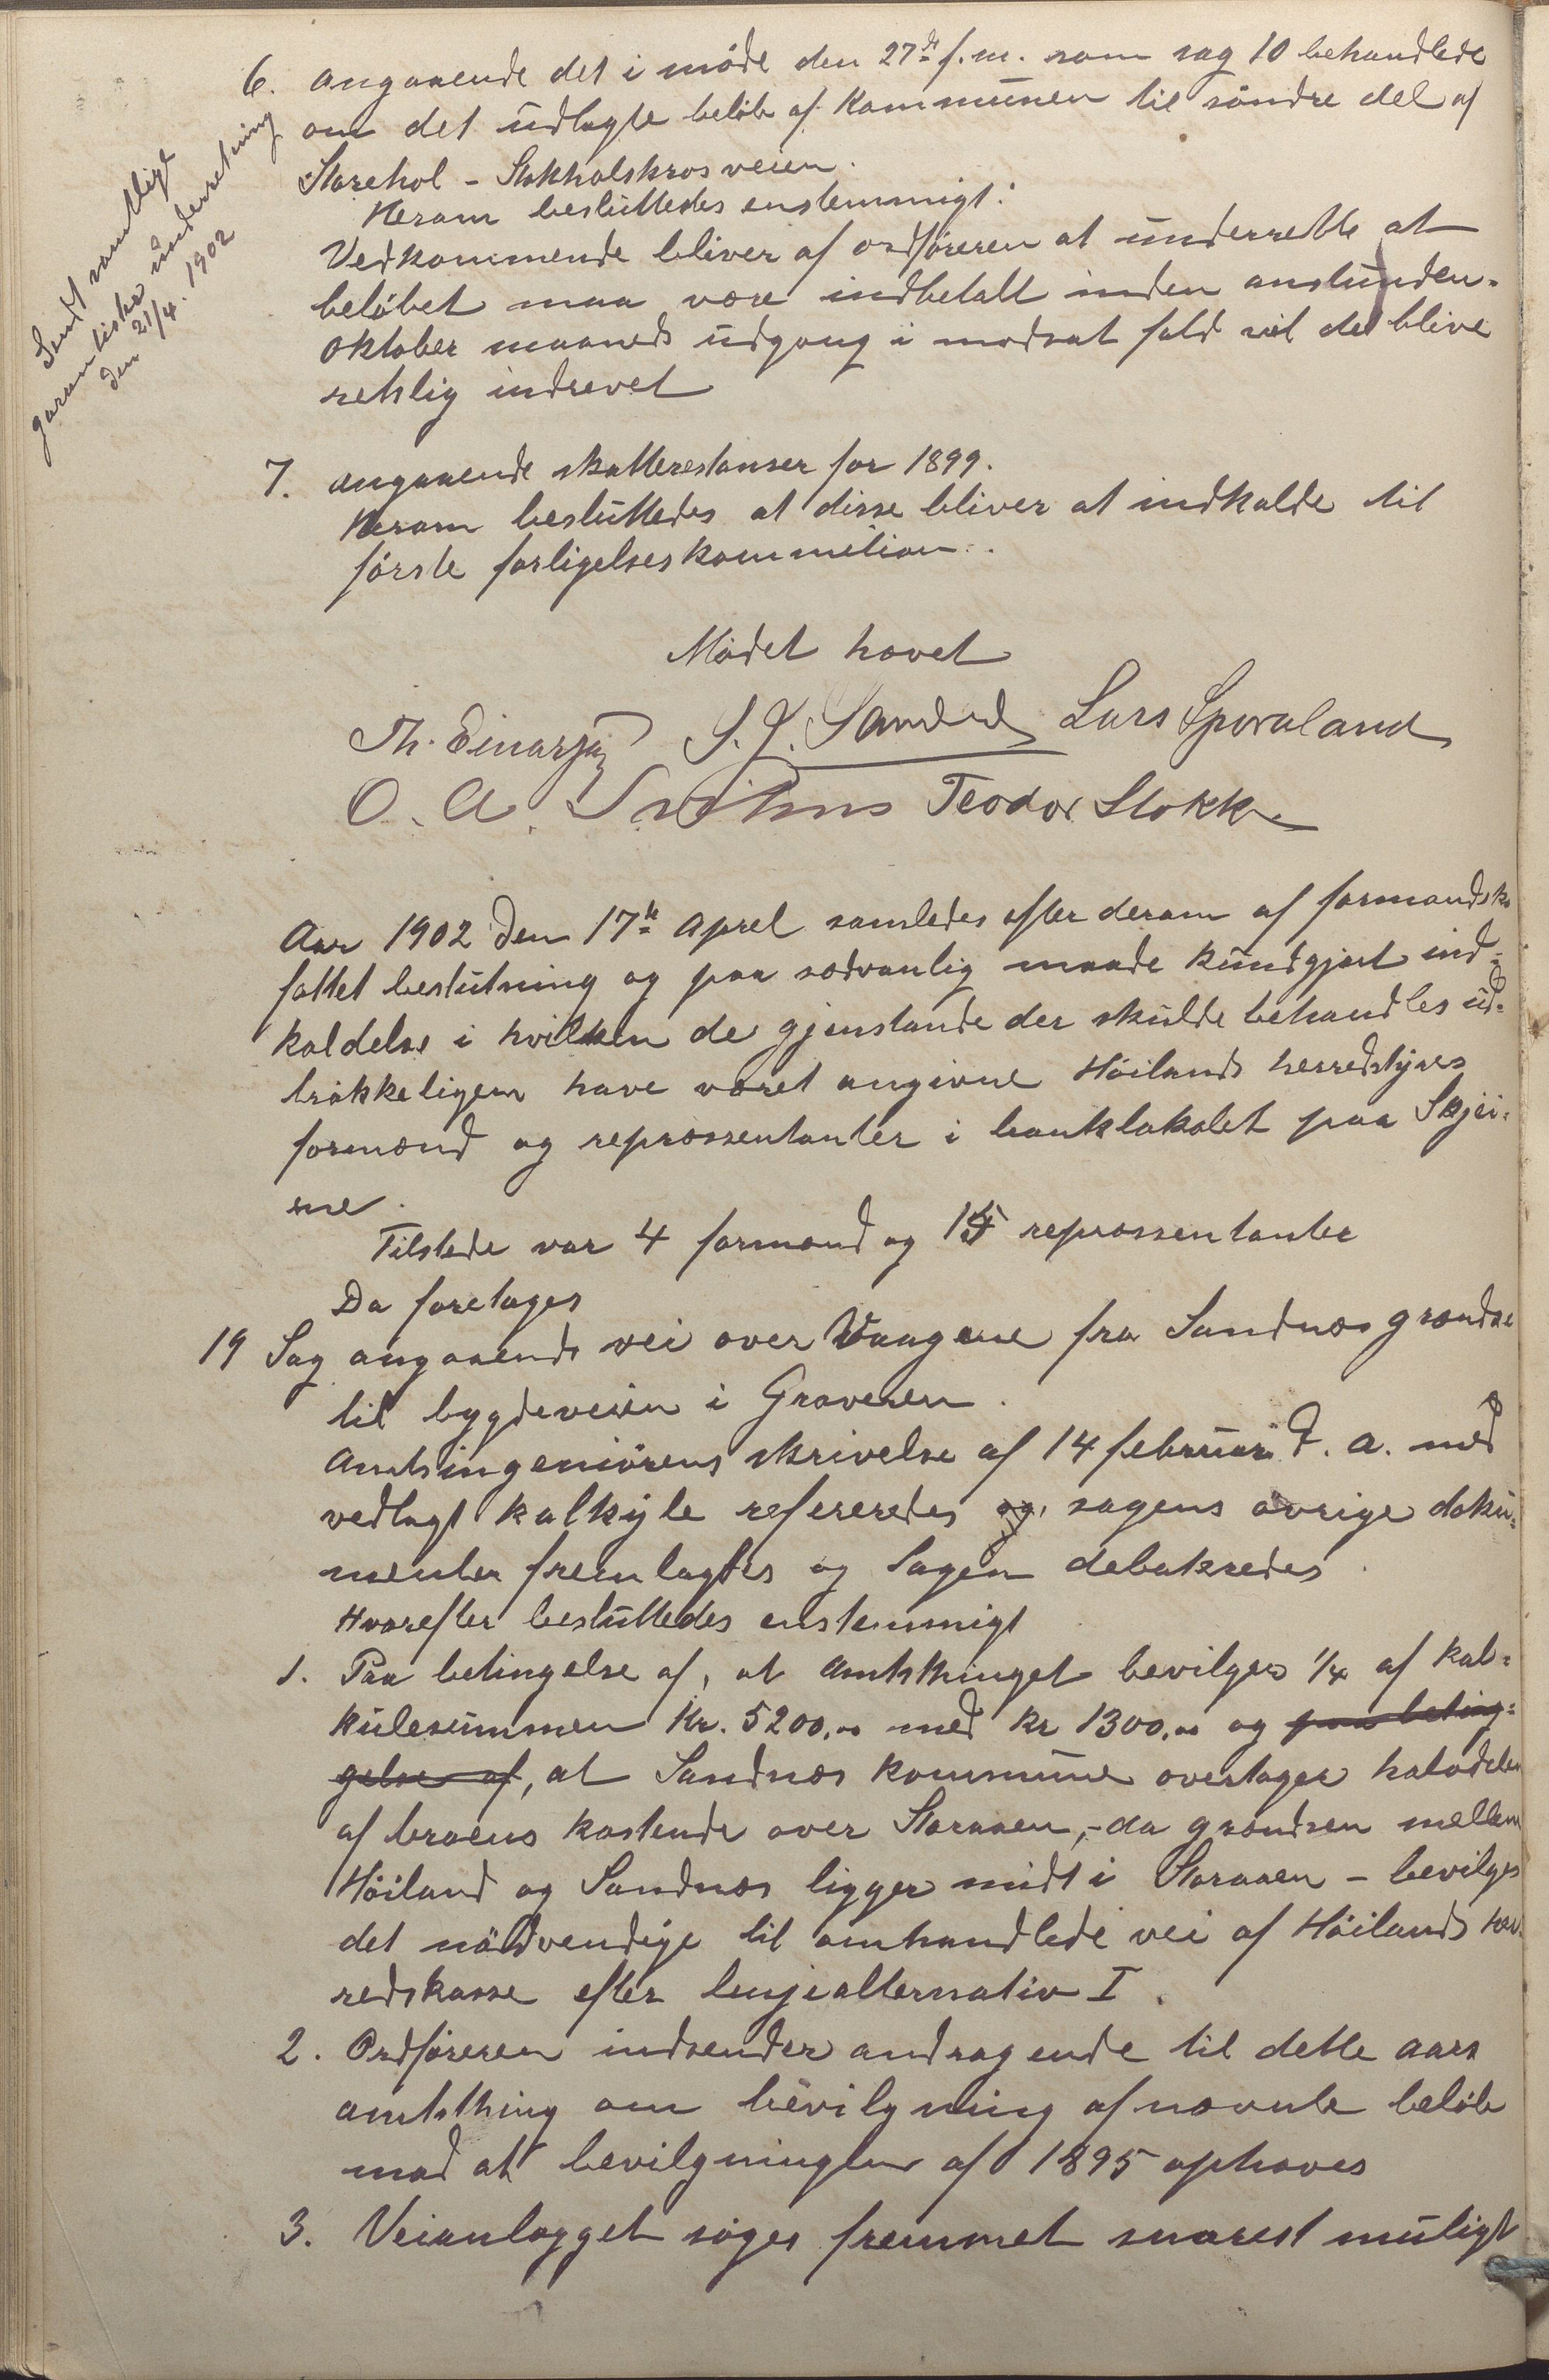 6. angaaende det i möde den 27de f.m. som sag 10 behandlede
om det udlagte belöb af Kommunen til söndre del af
Storehol - Stokholskrosveien.
Herom besluttedes enstemmigt:
Vedkommende bliver af ordföreren at underrette at
belöbet maa være indbetalt inden anstunden-
oktober maaneds udgang i modsat fald vil det blive
retslig indrevet
Sendt samtlige
garantister underretning
den 21/4. 1902
7. angaaende skatterestanser for 1899.
Herom besluttedes at disse bliver at indkalde til
förste forligelseskommition.
Mödet hævet
Th. Einarsen S. J. Sandved Lars Sporaland
O. A. Teodor Stokke
Aar 1902 den 17de aprel samledes efter derom af formandsk
fattet beslutning og paa sædvanlig maade kundgjort ind-
kaldelse i hvilken de gjenstande der skulde behandles ud-
trökkeligen have været angivne Höilands herredstyres
formænd og repræssentanter i banklokalet paa Skjei-
ene.
Tilstede var 4 formænd og 15 repræssentanter
Da foretages
19 Sag angaaende vei over Vaagene fra Sandnæs grændse
til bygdeveien i Graveren.
Amtsingeniörens skrivelse af 14 februar d. a. med
vedlagt kalkyle refereredes og sagens övrige doku-
menter fremlagtes og Sagen debateredes.
Hvorefter besluttedes enstemmigt
1. Paa betingelse af, at Amtsthinget bevilger 1/4 af kal-
kulesummen Kr. 5200,00 med kr 1300,00 og paa beting-
gelse af, at Sandnæs kommune overtager halvdelen
af broens kostende over Storaaen, - da grændsen mellem
Höiland og Sandnæs ligger midt i Storaaen - bevilges
det nödvendige til omhandlede vei af Höilands her-
redskasse efter linjealternativ I.
2. Ordföreren indsender andragende til dette aars
amtsthing om bevilgning af nævnte belöb
mod at bevilgningen af 1895 ophæves
3. Veianlægget söges fremmet snarest muligt